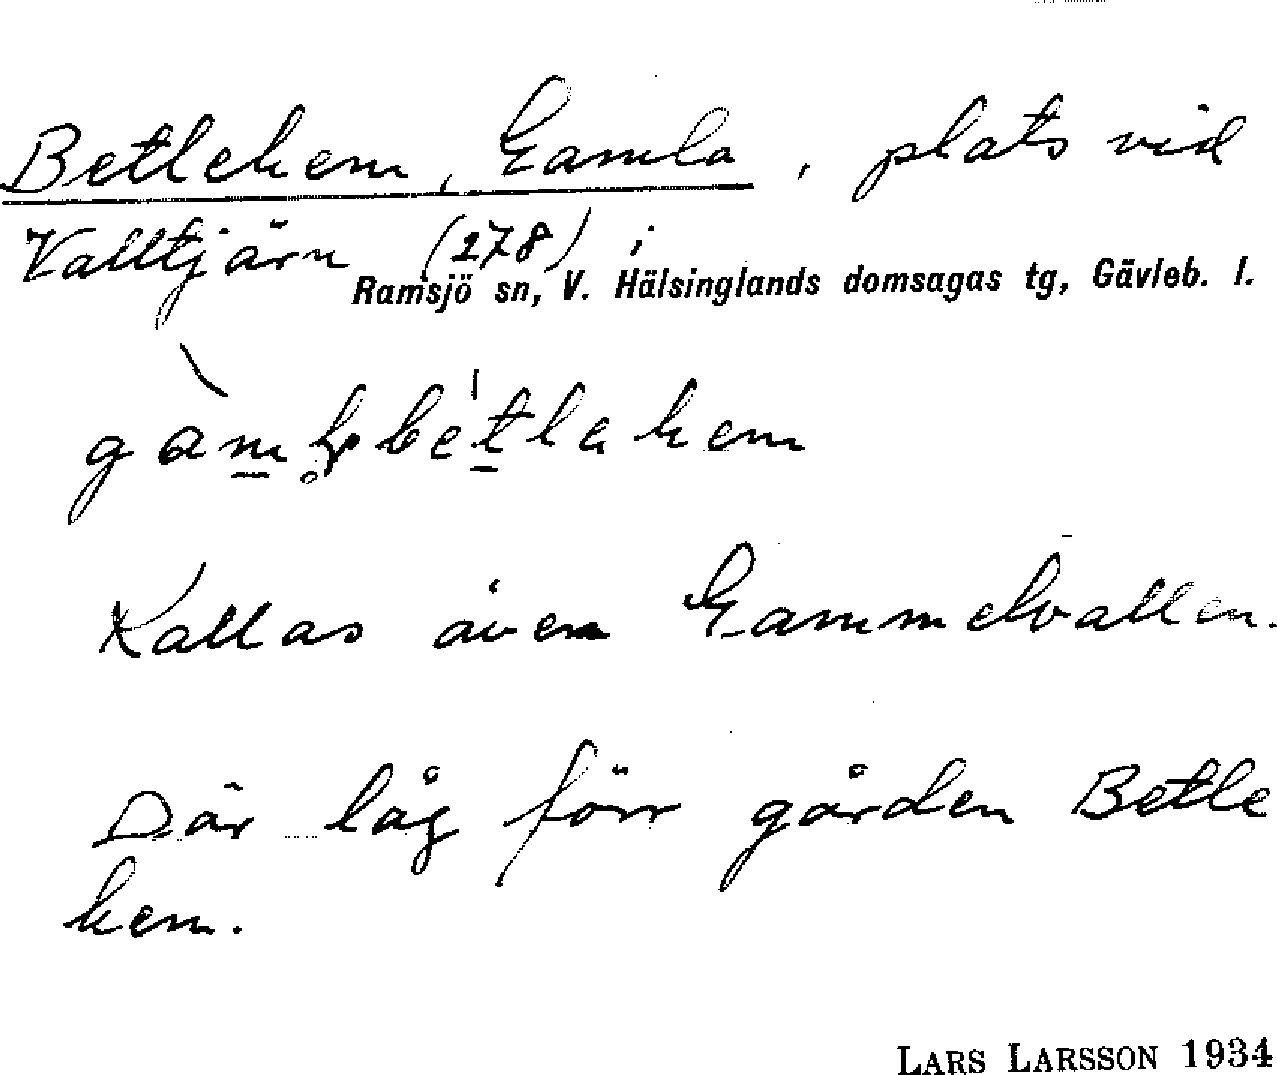 Betlehem, Gamla, plats vid
Valltjärn (178) i
Ramsjö sn, V. Hälsinglands domsagas tg, Gävleb. l.
Kallas även Gammelvallen.
Där låg förr gården Betle
hem.
LARS LARSSON 1934